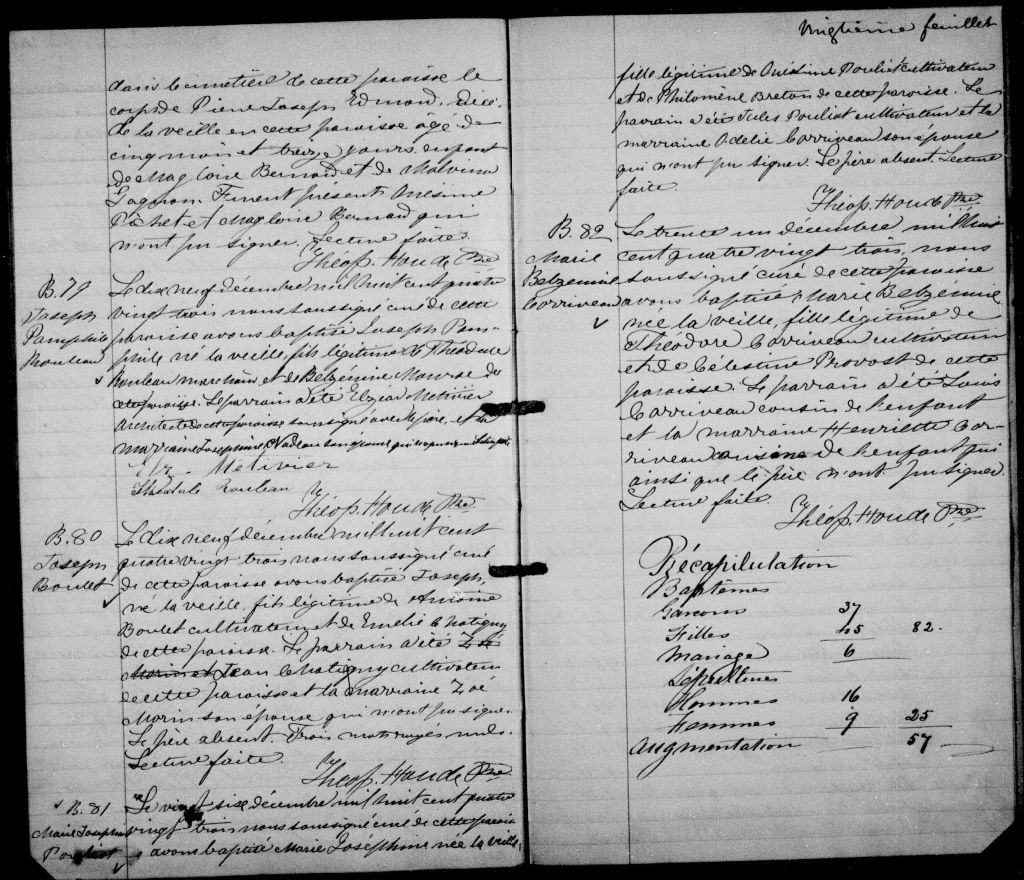 dans le cimetière de cette paroisse le
corps de Pierre Joseph Edmond, décé-
dé la veille en cette paroisse âgé de
cinq mois et treize jours, enfant
de Magloire Bernard et de Malvina
Gagnon. Furent présents Onésime
Pichet et Magloire Bernard qui
n'ont pu signer. Lecture faite.
Théop. Houde Ptre
B. 79
Joseph
Pamphile
Rouleau
Le dix neuf décembre mil huit cent quatre
vingt trois nous soussigné curé de cette
paroisse avons baptisé Joseph Pam-
phile né la veille, fils légitime de Théodule
Rouleau marchand et de Belzémire Mourse de
cette paroisse. Le parrain a été Elzéar Métivier
Architecte de cette paroisse soussigné avec le père, et la
marraine Josephine Nadeau son épouse qui n'a pu signer. Lecture faite.
Elz. Métivier
Théodule Rouleau
Théop. Houde Ptre
B. 80
Joseph
Boulet
Le dix neuf décembre mil huit cent
quatre vingt trois nous soussigné curé
de cette paroisse avons baptisé Joseph,
né la veille, fils légitime de Antoine
Boulet cultivateur et de Emélie Chatigny
de cette paroisse. Le parrain a été Zoé
Morin et Jean Chatigny cultivateur
de cette paroisse et la marraine Zoé
Morin son épouse qui n'ont pu signer
Le père absent. Trois mots rayés nuls.
Lecture faite.
Théop. Houde Ptre
B. 81
Marie Joseph
Pouliot
Le vingt six décembre mil huit cent quatre
vingt trois nous soussigné curé de cette paroisse
avons baptisé Marie Joséphine née la veille,
Vingtième feuillet
fille légitime de Onésime Pouliot cultivateur
et de Philomène Breton de cette paroisse. Le
parrain a été Jules Pouliot cultivateur et la
marraine Adélie Corriveau son épouse
qui n'ont pu signer. Le père absent. Lecture
faite.
Théop. Houde Ptre
B. 82
Marie
Belzémire
Corriveau
Le trente un décembre mil huit
cent quatre vingt trois, nous
soussigné curé de cette paroisse
avons baptisé Marie Belzémire
née la veille, fille légitime de
Théodore Corriveau cultivateur
et de Célestine Provost de cette
paroisse. Le parrain a été Louis
Corriveau cousin de l'enfant
et la marraine Henriette Cor-
riveau cousine de l'enfant qui
ainsi que le père n'ont pu signer.
Lecture faite.
Théop. Houde Ptre
Récapitulation
Baptêmes
Garcons 37
Filles 45 82.
Mariage 6
Sépultures
Hommes 16
Femmes 9 25
Augmentation 57